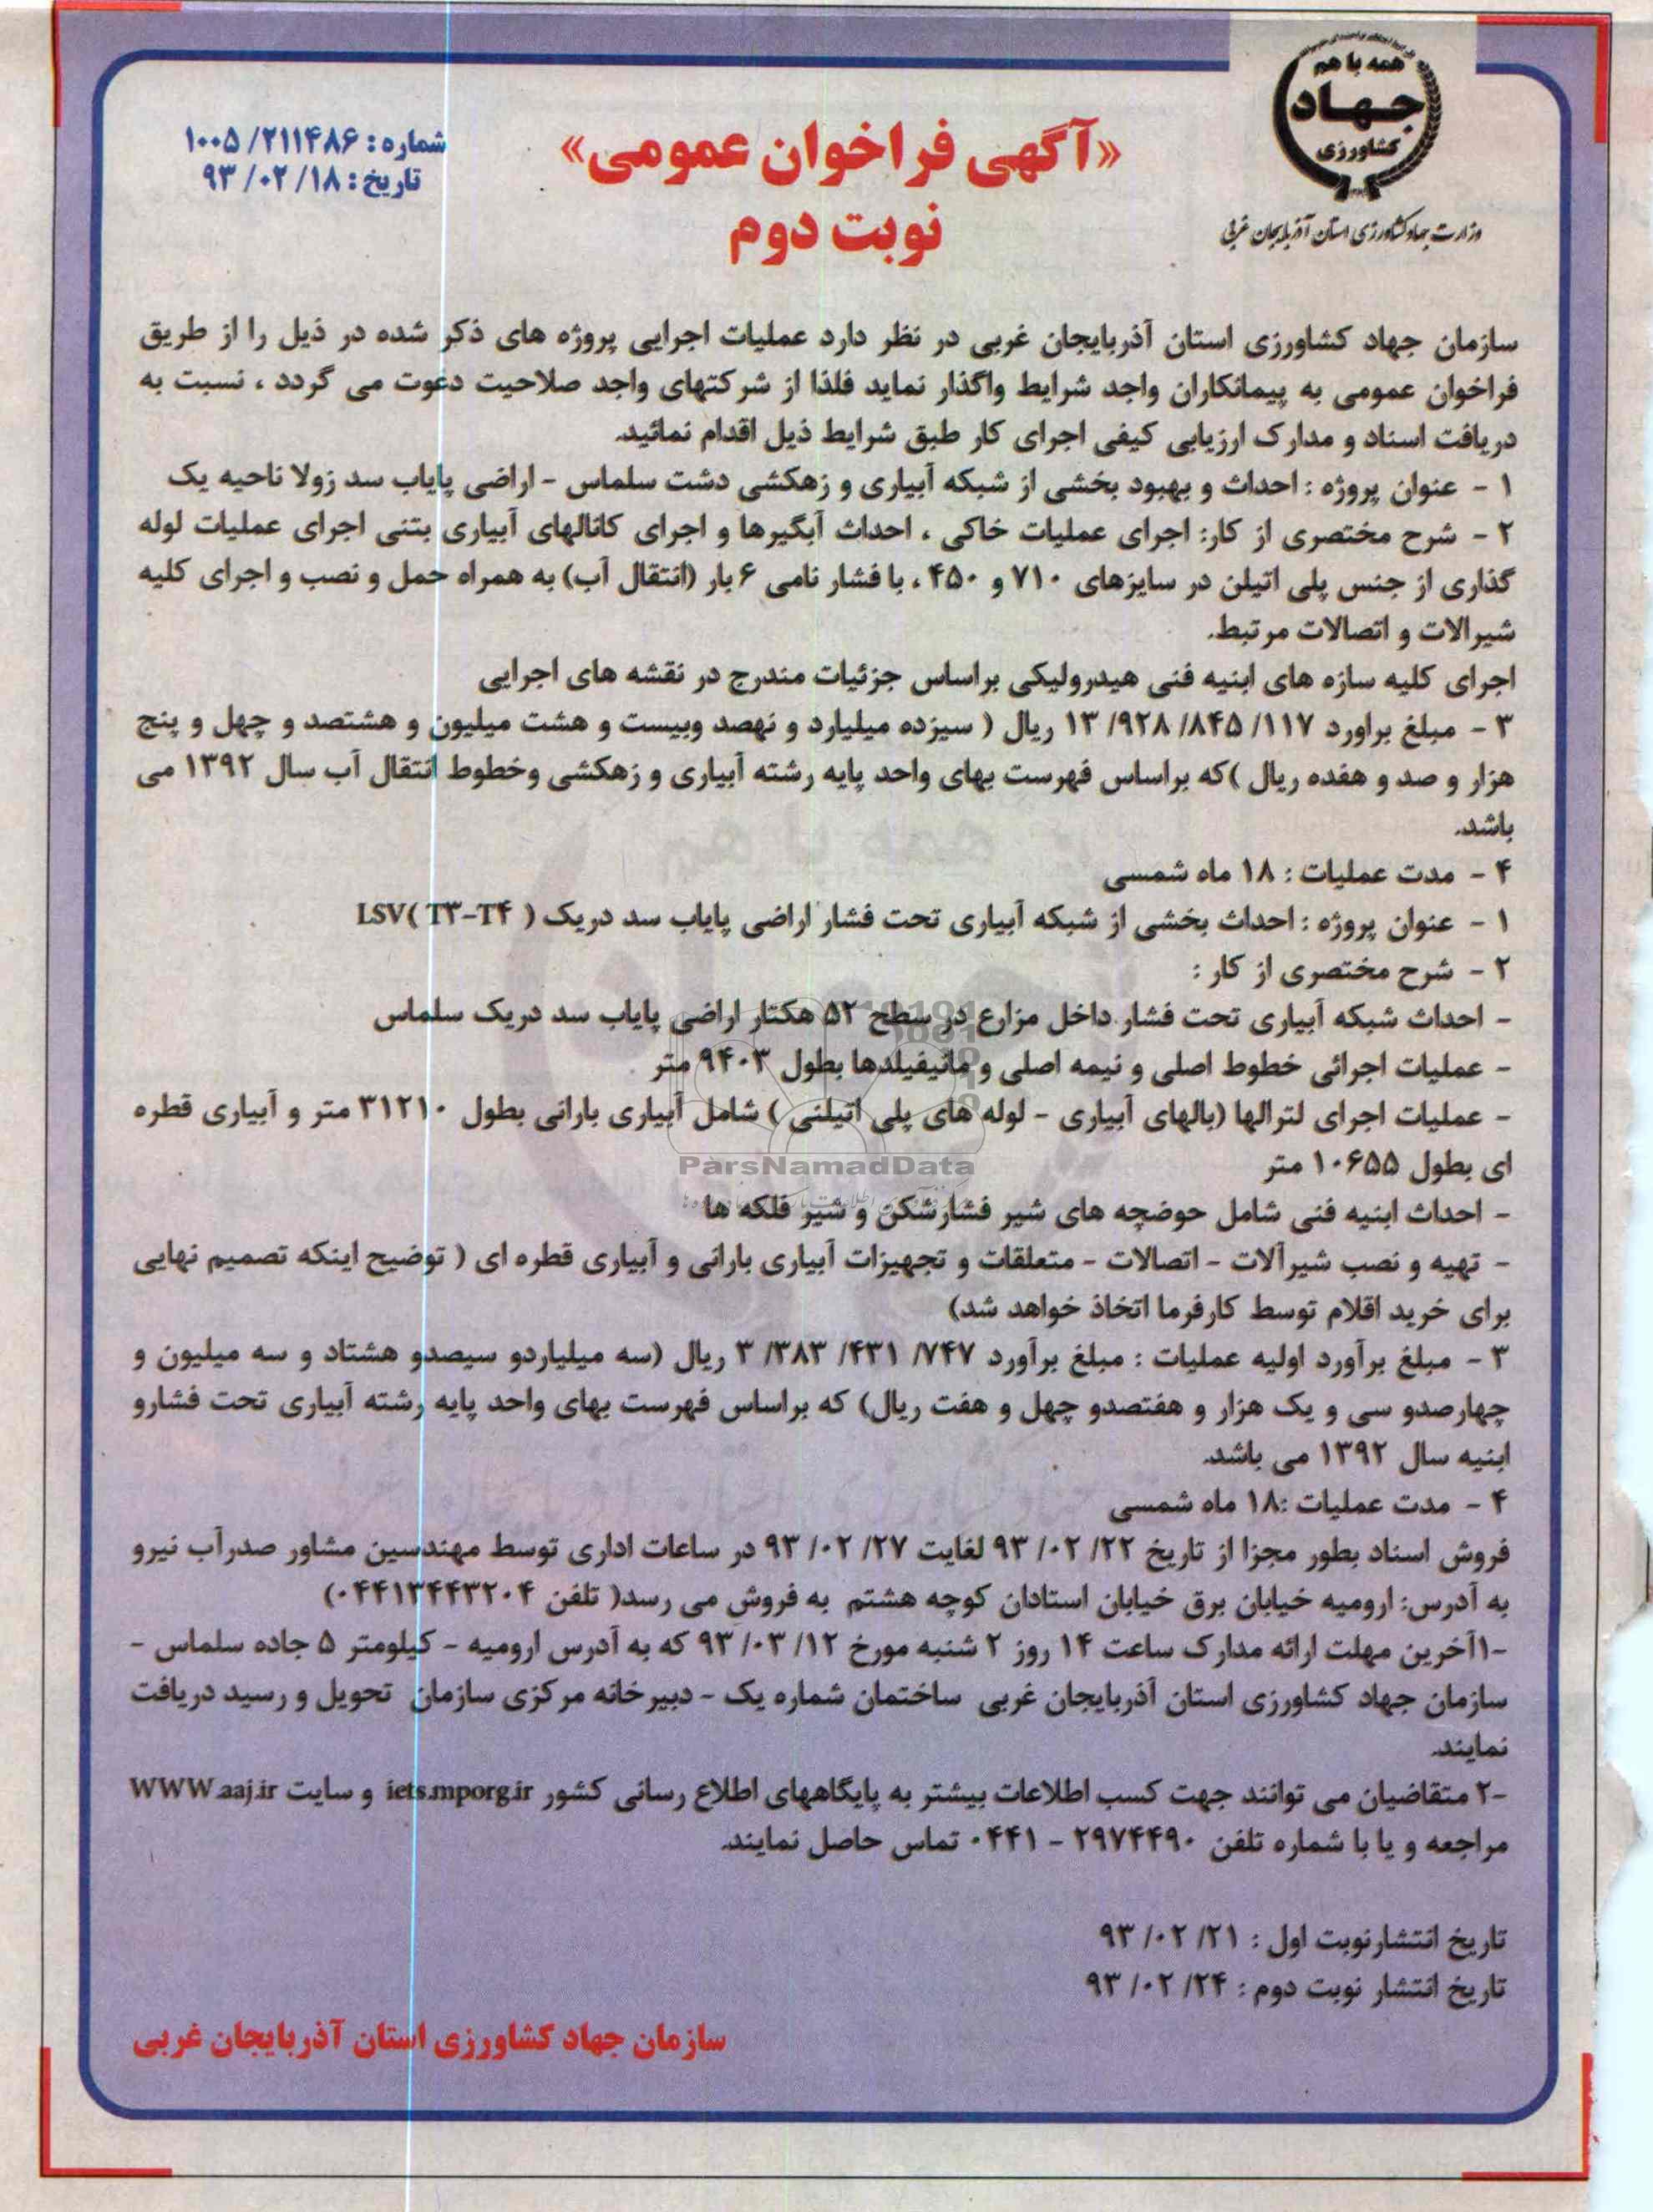 همه با هم
جهاد
کشاورزی
وزارت جهاد کشاورزی استان آذربایجان غربی
شماره : ۲۱۱۴۸۶/ ۱۰۰۵
تاریخ : ۱۸/ ۰۲/ ۹۳
«آگهی فراخوان عمومی»
نوبت دوم
سازمان جهاد کشاورزی استان آذربایجان غربی در نظر دارد عملیات اجرایی پروژه های ذکر شده در ذیل را از طریق
فراخوان عمومی به پیمانکاران واجد شرایط واگذار نماید فلذا از شرکتهای واجد صلاحیت دعوت می گردد ، نسبت به
دریافت اسناد و مدارک ارزیابی کیفی اجرای کار طبق شرایط ذیل اقدام نمائید.
۱ - عنوان پروژه : احداث و بهبود بخشی از شبکه آبیاری و زهکشی دشت سلماس - اراضی پایاب سد زولا ناحیه یک
۲ - شرح مختصری از کار: اجرای عملیات خاکی ، احداث آبگیرها و اجرای کانالهای آبیاری بتنی اجرای عملیات لوله
گذاری از جنس پلی اتیلن در سایزهای ۷۱۰ و ۴۵۰ ، با فشار نامی ۶ بار (انتقال آب) به همراه حمل و نصب و اجرای کلیه
شیرالات و اتصالات مرتبط.
اجرای کلیه سازه های ابنیه فنی هیدرولیکی براساس جزئیات مندرج در نقشه های اجرایی
۳ - مبلغ براورد ۱۱۷/ ۸۴۵/ ۹۲۸/ ۱۳ ریال ( سیزده میلیارد و نهصد وبیست و هشت میلیون و هشتصد و چهل و پنج
هزار و صد و هفده ریال )که براساس فهرست بهای واحد پایه رشته آبیاری و زهکشی وخطوط انتقال آب سال ۱۳۹۲ می
باشد.
۴ - مدت عملیات : ۱۸ ماه شمسی
۱ - عنوان پروژه : احداث بخشی از شبکه آبیاری تحت فشار اراضی پایاب سد دریک ( LSV( T۳-T۴
۲ - شرح مختصری از کار :
- احداث شبکه آبیاری تحت فشار داخل مزارع در سطح ۵۲ هکتار اراضی پایاب سد دریک سلماس
- عملیات اجرائی خطوط اصلی و نیمه اصلی و مانیفیلدها بطول ۹۴۰۳ متر .
- عملیات اجرای لترالها (بالهای آبیاری - لوله های پلی اتیلنی ) شامل آبیاری بارانی بطول ۳۱۲۱۰ متر و آبیاری قطره
ای بطول ۱۰۶۵۵ متر
ParsNamadData
- احداث ابنیه فنی شامل حوضچه های شیر فشارشکن و شیر فلکه ها
- تهیه و نصب شیرآلات - اتصالات - متعلقات و تجهیزات آبیاری بارانی و آبیاری قطره ای ( توضیح اینکه تصمیم نهایی
برای خرید اقلام توسط کارفرما اتخاذ خواهد شد)
۳ - مبلغ برآورد اولیه عملیات : مبلغ برآورد ۷۴۷/ ۴۳۱/ ۳۸۳/ ۳ ریال (سه میلیاردو سیصدو هشتاد و سه میلیون و
چهارصدو سی و یک هزار و هفتصدو چهل و هفت ریال) که براساس فهرست بهای واحد پایه رشته آبیاری تحت فشارو
ابنیه سال ۱۳۹۲ می باشد.
۴ - مدت عملیات :۱۸ ماه شمسی
فروش اسناد بطور مجزا از تاریخ ۲۲/ ۰۲/ ۹۳ لغایت ۲۷/ ۰۲/ ۹۳ در ساعات اداری توسط مهندسین مشاور صدرآب نیرو
به آدرس: ارومیه خیابان برق خیابان استادان کوچه هشتم به فروش می رسد( تلفن ۰۴۴۱۳۴۴۳۲۰۴)
-۱آخرین مهلت ارائه مدارک ساعت ۱۴ روز ۲ شنبه مورخ ۱۲/ ۰۳/ ۹۳ که به آدرس ارومیه - کیلومتر ۵ جاده سلماس -
سازمان جهاد کشاورزی استان آذربایجان غربی ساختمان شماره یک - دبیرخانه مرکزی سازمان تحویل و رسید دریافت
نمایند.
-۲ متقاضیان می توانند جهت کسب اطلاعات بیشتر به پایگاههای اطلاع رسانی کشور iets.mporg.ir و سایت WWW.aaj.ir
مراجعه و یا با شماره تلفن ۲۹۷۴۴۹۰ - ۰۴۴۱ تماس حاصل نمایند.
تاریخ انتشارنوبت اول : ۲۱/ ۰۲/ ۹۳
تاریخ انتشار نوبت دوم : ۲۴/ ۰۲/ ۹۳
سازمان جهاد کشاورزی استان آذربایجان غربی